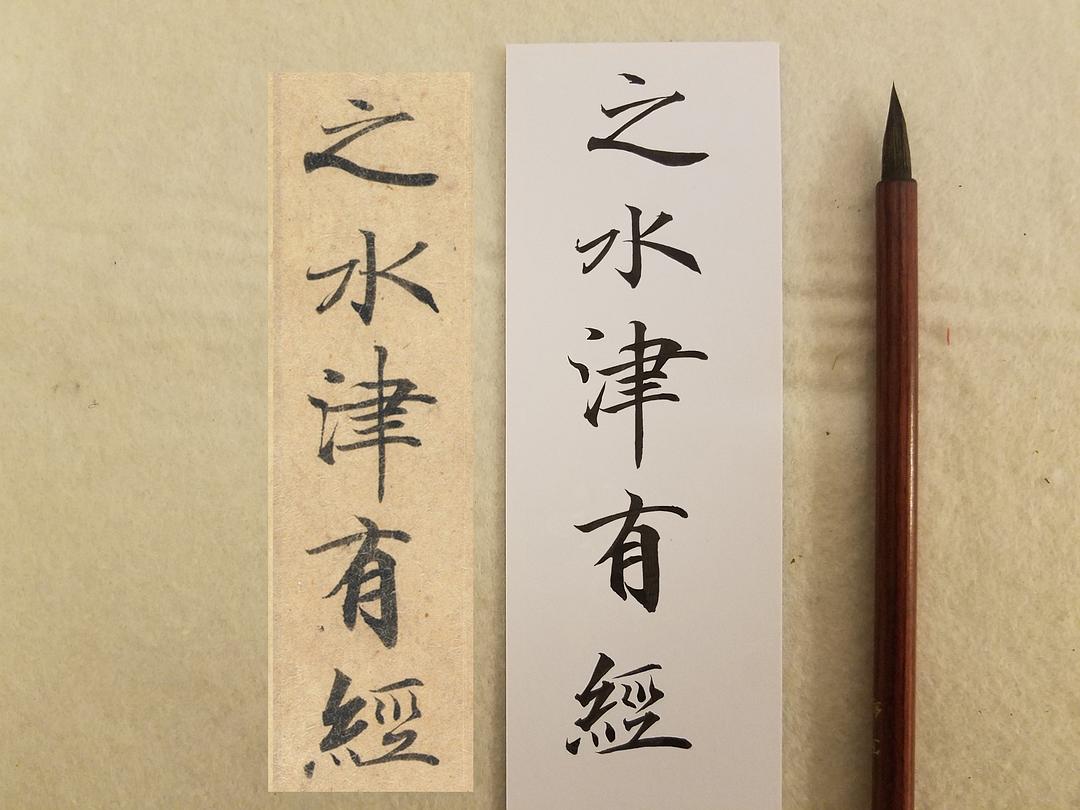 之水津有經
之水津有經